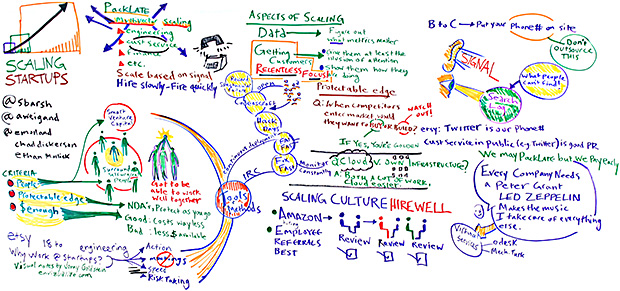 SCALING
STARTUPS
@sbarsh
@avsigand
@emonland
chad dickerson
ethan
PackLATE
Multivariate Scaling
engineering
cust service
finance
etc.
Scale based on signal
Hire slowly - Fire quickly
CRITERIA
People
Protectable edge
$ enough
Smart
Venture
Capital
Surround
good
people
got to be
able to work
well together
NDA's, Protect as you go
Good: Costs way less
Bad: less $ available
etsy 18 to engineering
Why work @ startups?
Action
meetings
specs
Risk Taking
Visual notes by
Tools
methods
IRC
continuous deployment
Hack
Days
Fail
FAST
Fix
FAST
Monitor
constantly
ASPECTS OF SCALING
Data
Figure out
what metrics matter
Getting
Customers
Give them at least the
illusion of attention
RELENTLESS FOCUS
Show them how they
are doing
Protectable edge
Q: When competitors
enter market would
they want to BUY or BUILD?
WATCH
OUT!
IF YES, You're GOLDEN
Q: Cloud v. own INFRASTRUCTURE?
A: Both a lot of work.
Cloud easier.
SCALING CULTURE HIRE WELL
Amazon
hiring
EMPLOYEE
REFERRALS
BEST
Review
Review
Review
B to C → Put your Phone# on site
Don't
OUTSOURCE
THIS
SIGNAL
what people
can't find!
Search
Log
etsy: Twitter is our Phone#
Cust Service in Public (eg Twitter) is good PR
We may Pack Late but we Pay early
Every Company Needs
a Peter Grant
LED ZEPPELIN
Makes the music
I take care of everything
else.
Virtual
Services
odesk
Mech. Turk